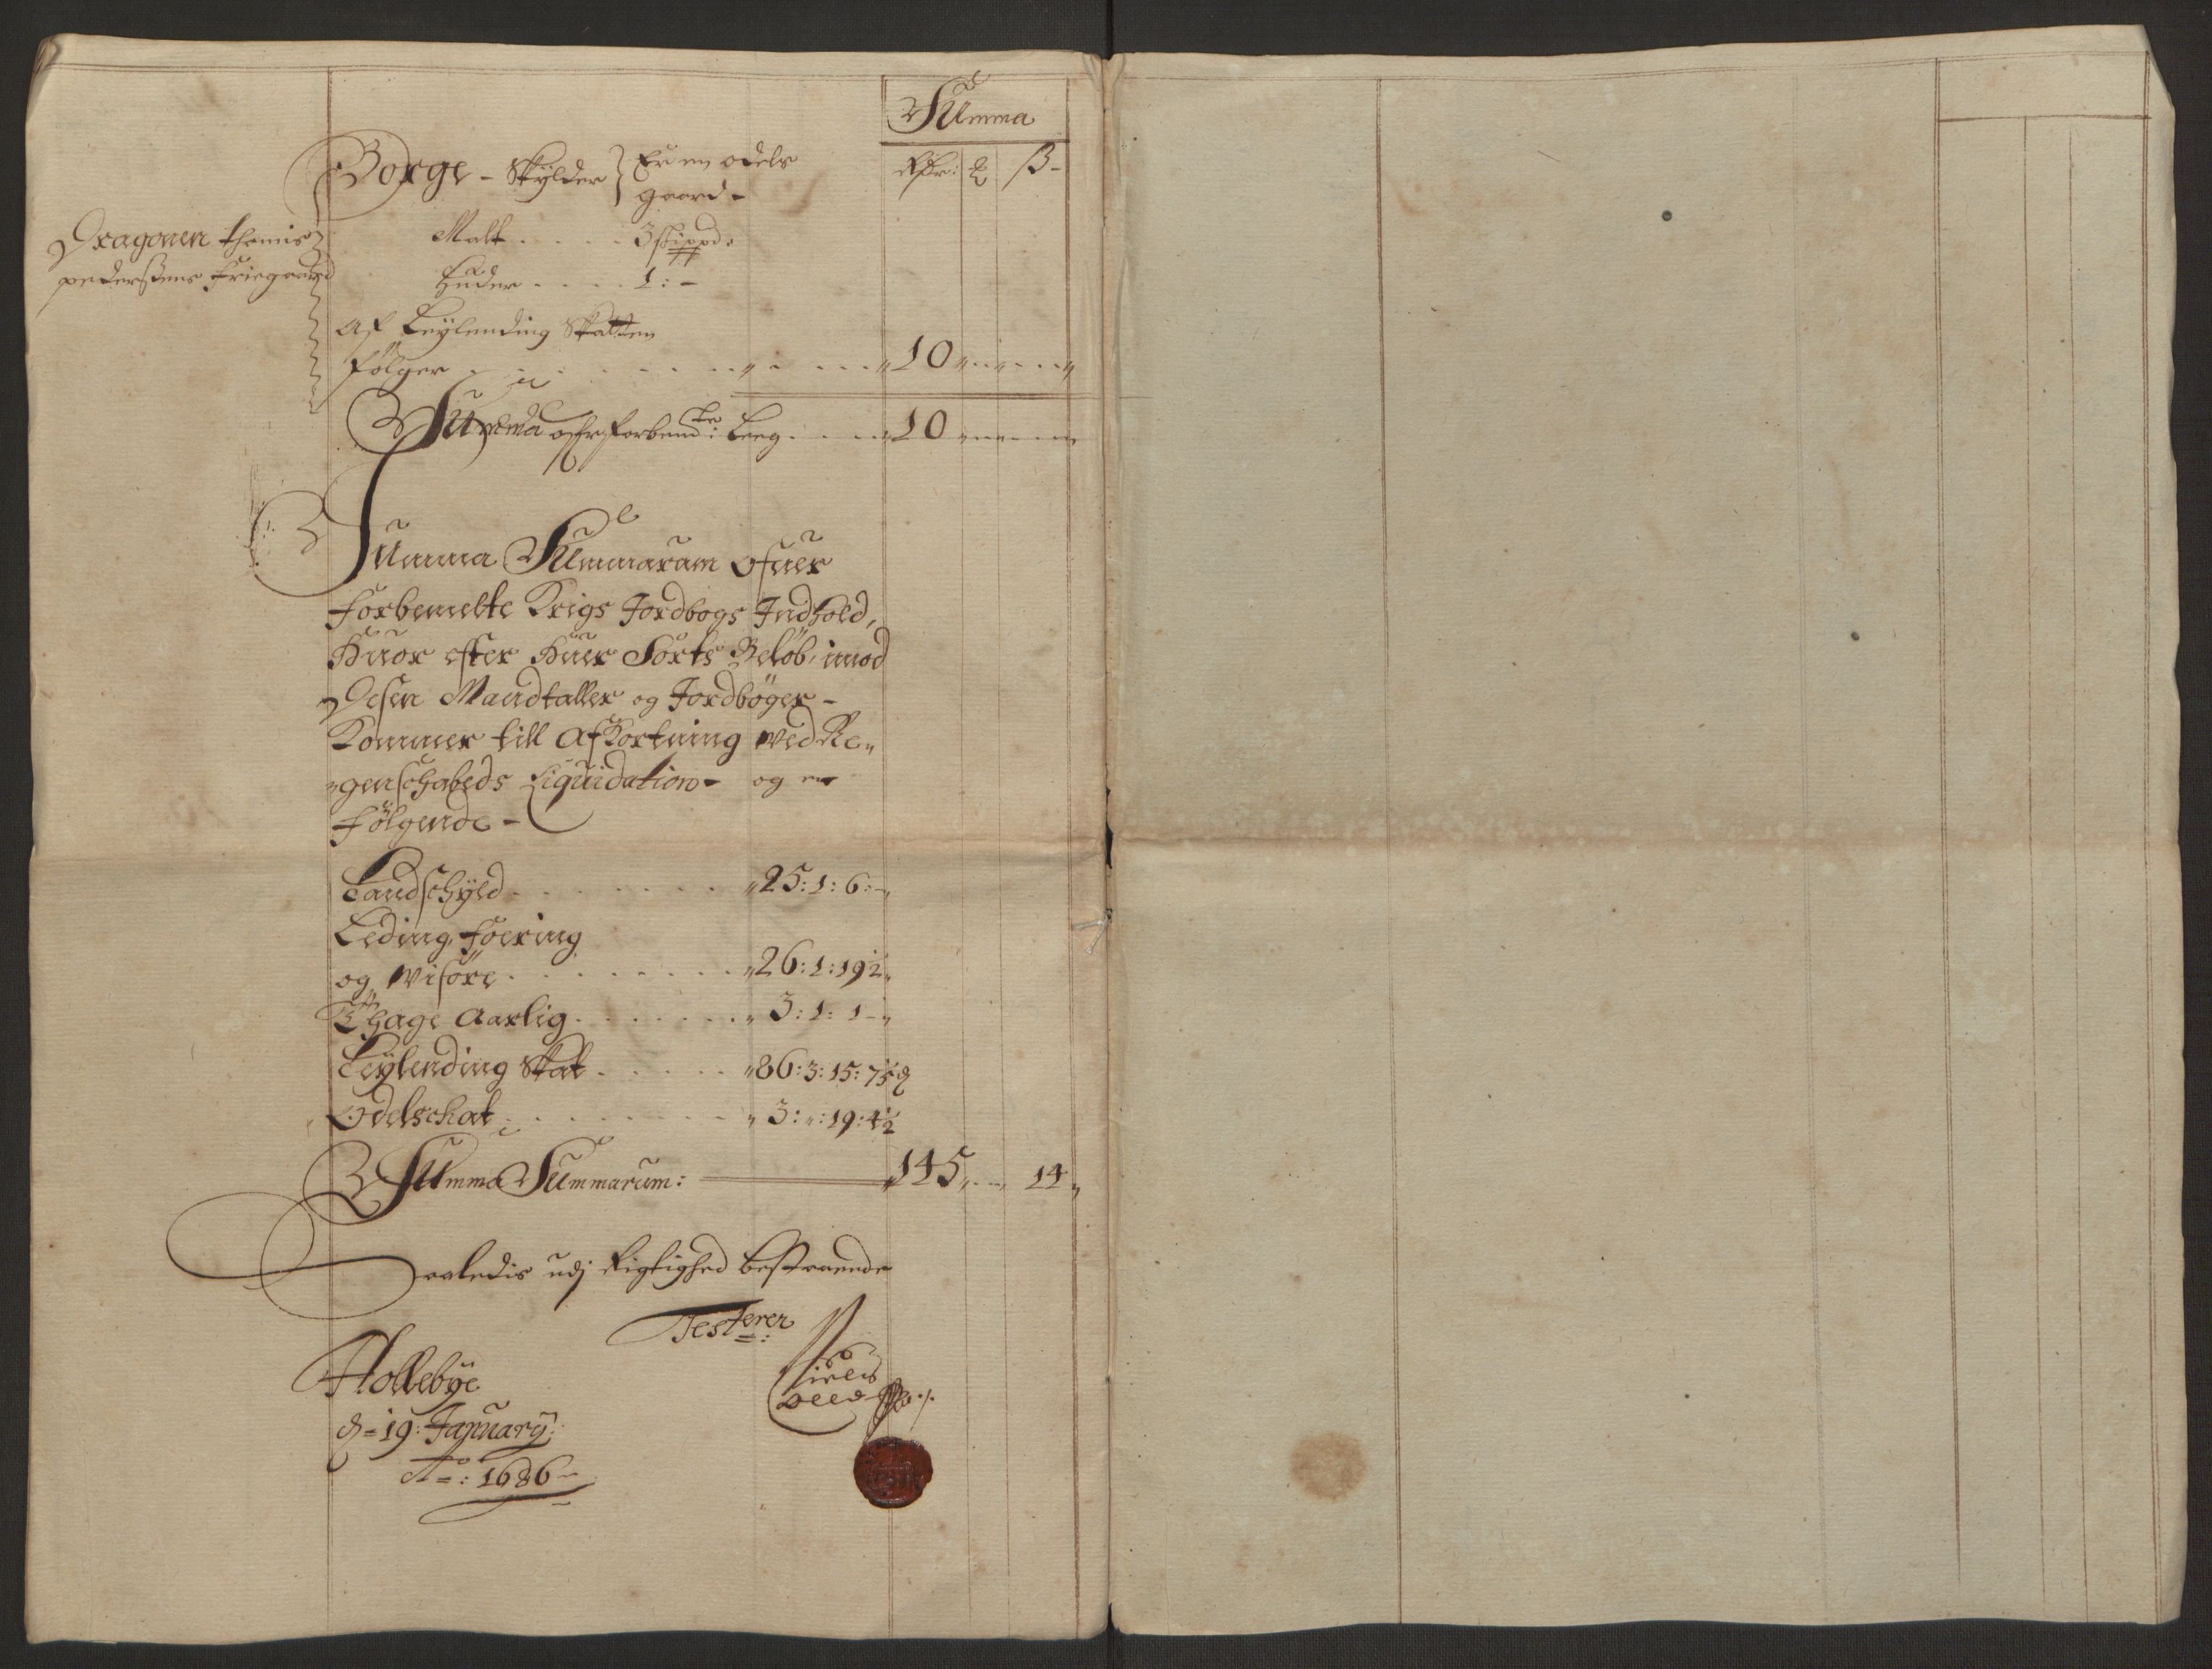 Summa
Borge - Skylder } Er en odels
gaard -
Rdr: ß -
Dragonen thomis
pedersens Friegaard
Malt . . . . 3 skippd:
Huder . . . . 1: -
Af Leylending Skatten
følger . . . . . . . „ 10 „ „ „
Summa ofr forbemte: Leeg . . . . 10 „ „ „
Summa Summarum ofuer
Forbemelte Krigs Jordbogs Indhold,
Huor efter Huer Sorts Beløb, imod
Desen Mandtaller og Jordbøger -
Kommer till Afkortning ved Re„
„genschabeds Liquidation - og er
Følgende -
Landschyld . . . . . . . „ 25: 1: 6: - „
Leding, Foering
og Wisøre . . . . . . . . „ 26: 1: 19½ „
Bthage Aarlig . . . . . . . „ 3: 1: 1 - „
Leylending Skat . . . . . „ 86: 3: 15: 7½ ₰
Odelschat . . . . . . . „ 3: „: 19: 4½
Summa Summarum: 145 „ - „ 14 „
Saaledis udj Rigtighed bestaaende
Testerer
Hollebye
d= 19: January:
Ao=: 1686 -
Niels